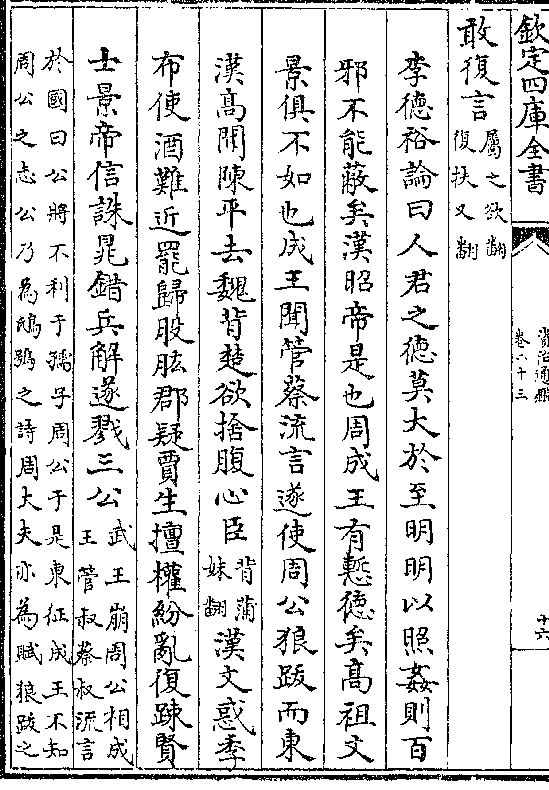 欽定四庫全書
資治通鑑
卷二十三
十六
敢復言屬之欲翻
復扶又翻
李德裕論曰人君之德莫大於至明明以照姦則百
邪不能蔽矣漢昭帝是也周成王有慙德矣高祖文
景俱不如也成王聞管蔡流言遂使周公狼跋而東
漢高聞陳平去魏背楚欲捨腹心臣背蒲
妹翻漢文惑季
布使酒難近罷歸股肱郡疑賈生擅權紛亂復疎賢
士景帝信誅晁錯兵解遂戮三公武王崩周公相成
王管叔蔡叔流言
於國曰公將不利于孺子周公于是東征成王不知
周公之志公乃為鴟鴞之詩周大夫亦為賦狼跋之